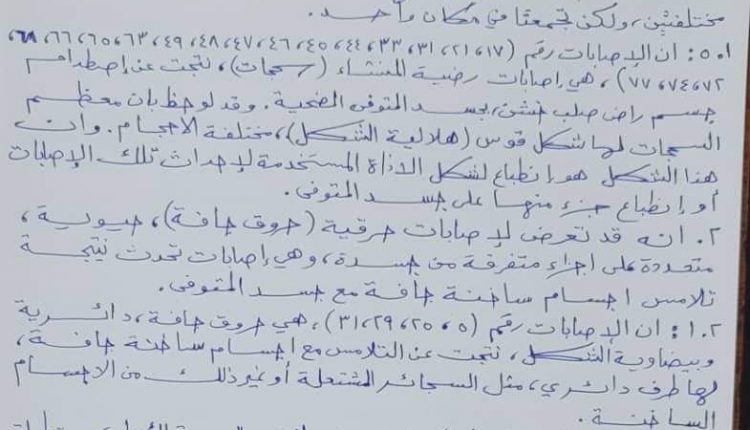 مختلفتين، ولكن تجمعتا في مكان واحد.
١.٥: ان الإصابات رقم (١٧، ٢١، ٣١، ٣٣، ٤٤، ٤٥، ٤٦، ٤٧، ٤٨، ٤٩، ٦٣، ٦٥، ٦٦، ٦٨،
٧٢، ٧٤، ٧٧)، هي إصابات رضية المنشاء (سحجات)، نتجت عن إصطدام
جسم راض صلب خشن، بجسد المتوفى الضحية. وقد لوحظ بان معظم
السحجات لها شكل قوس (هلالية الشكل)، مختلفة الاحجام. وان
هذا الشكل هو إنطباع لشكل الاداة المستخدمة لإحداث تلك الإصابات
أو إنطباع جزء منها على جسد المتوفى.
٢. انه قد تعرض لإصابات حرقية (حروق جافة)، حيوية،
متعددة على اجزاء متفرقة من جسدة، وهي إصابات تحدث نتيجة
تلامس اجسام ساخنة جافة مع جسد المتوفى.
٢.١: ان الإصابات رقم (٥، ٢٥، ٢٩، ٣١)، هي حروق جافة، دائرية
وبيضاوية الشكل، نتجت عن التلامس مع اجسام ساخنة جافة،
لها طرف دائري، مثل السجائر المشتعلة أو غير ذلك من الاجسام
الساخنة.